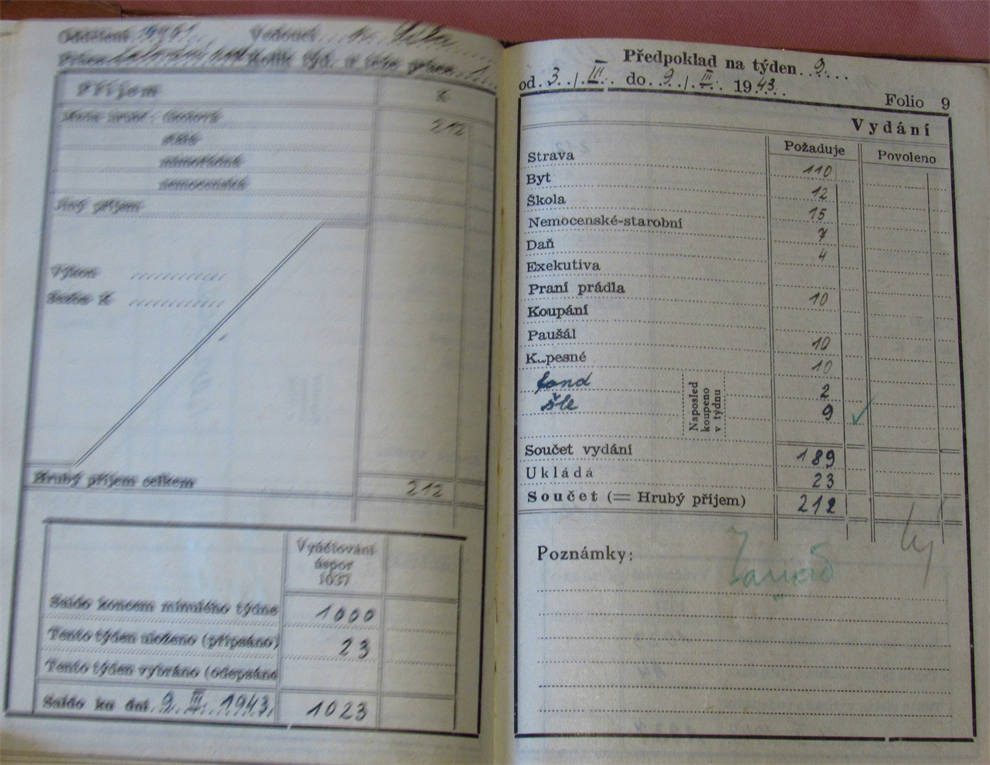 Oddělení
Vedoucí
Kolik týd. v této práci
Příjem
K
Mzda hrubá: úkolová
212
stálá
mimořádná
nemocenská
Jiný příjem
Výkon
Sazba K
Hrubý příjem celkem
212
Vyúčtování
úspor
1037
Saldo koncem minulého týdne
1000
Tento týden uloženo (připsáno)
23
Tento týden vybráno (odepsáno
Saldo ku dni 9. III. 1943.
1023
Předpoklad na týden 9.
od 3. / III. do 9. / III. 1943.
Folio 9
Vydání
Požaduje
Povoleno
Strava 110
Byt 12
Škola 15
Nemocenské-starobní 7
Daň 4
Exekutiva
Praní prádla 10
Koupání
Paušál 10
K..pesné 10
fond 2
šle 9
Naposled
koupeno
v týdnu
Součet vydání 189
Ukládá 23
Součet (= Hrubý příjem) 212
Poznámky: